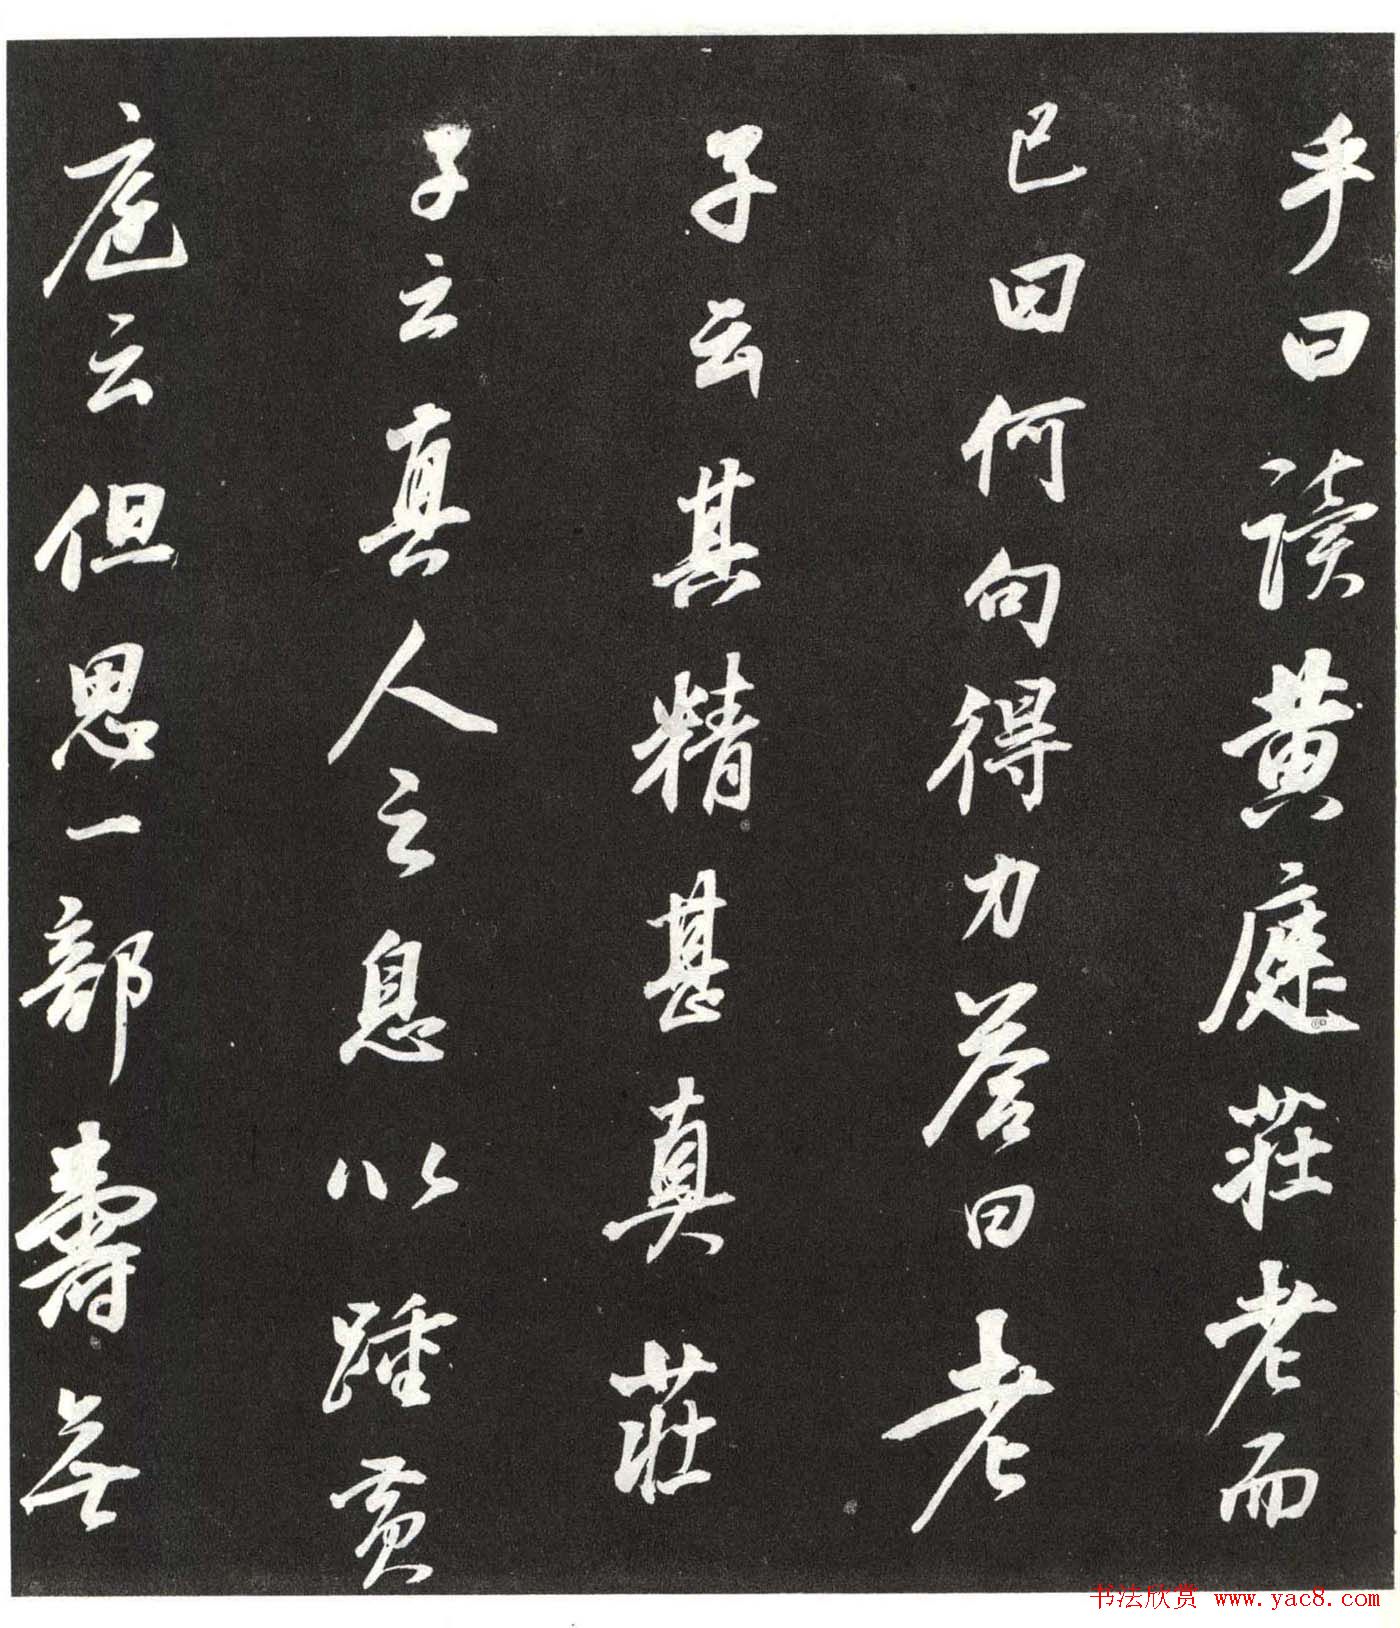 乎曰读黄庭莊老而
已曰何句得力答曰老
子云其精甚真莊
子云真人之息以踵黄
庭云但思一部壽無
书法欣赏 www.yac8.com